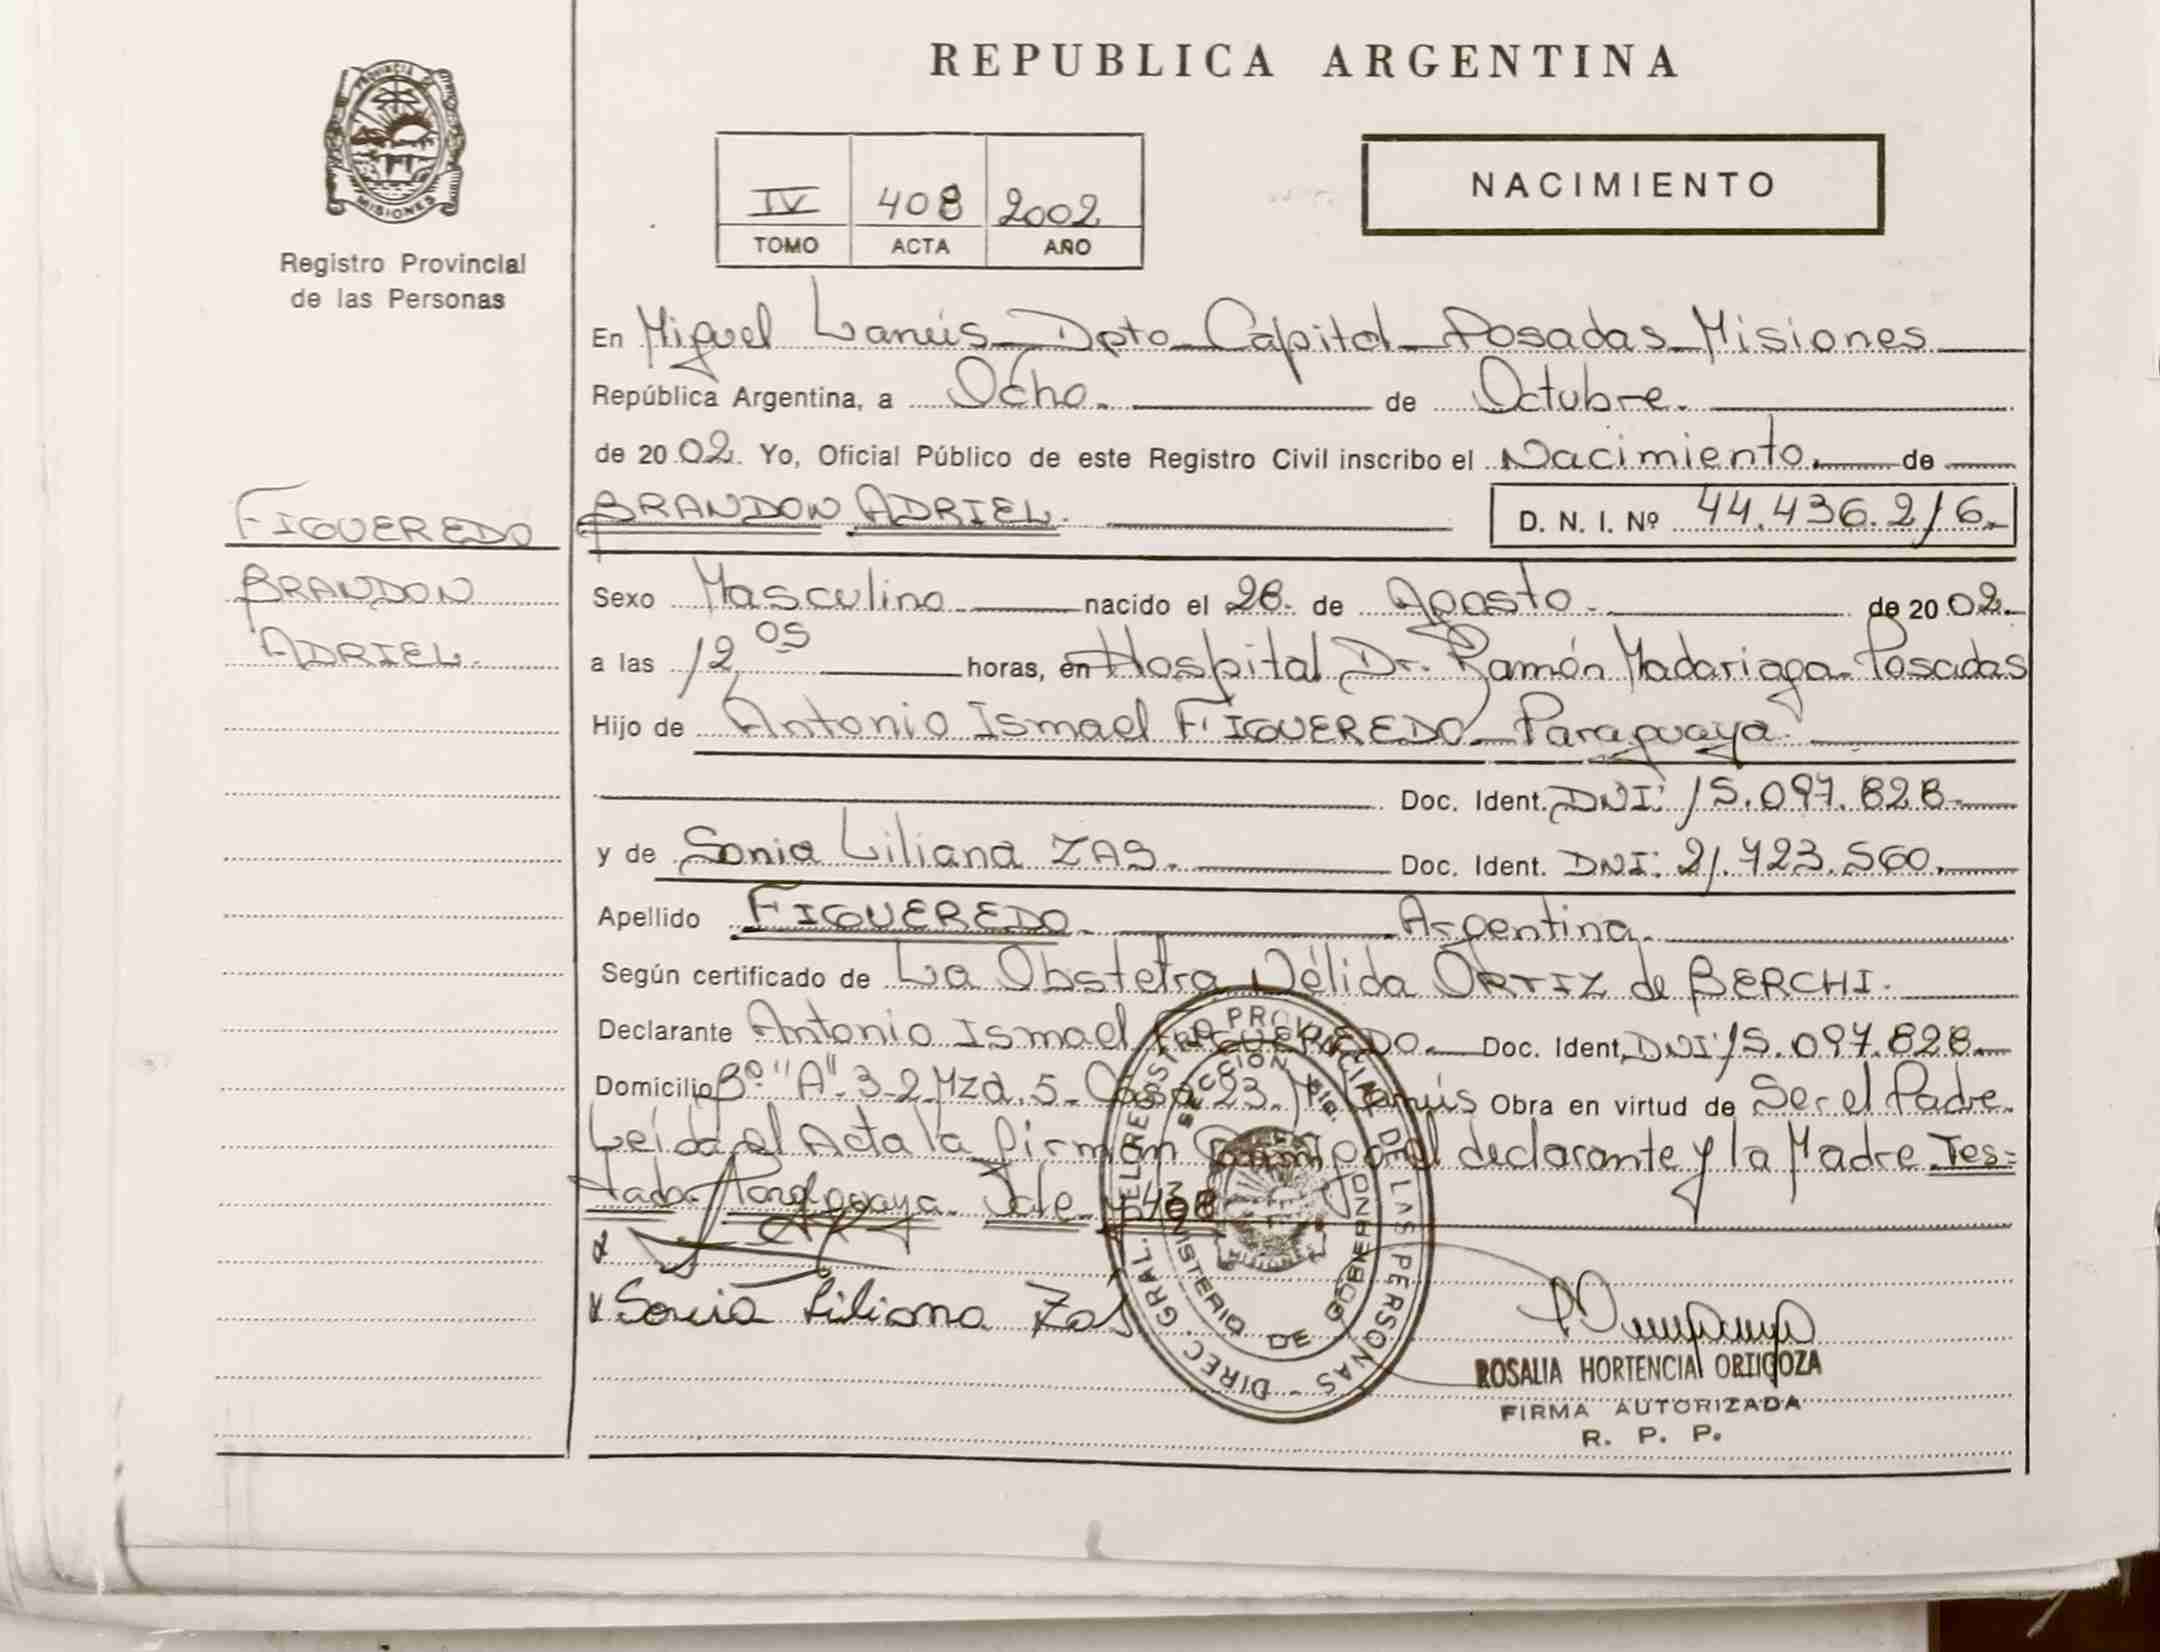 REPUBLICA ARGENTINA
PROVINCIA DE
MISIONES
Registro Provincial
de las Personas
IV 408 2002
TOMO ACTA AÑO
NACIMIENTO
En Miguel Lanús Dpto Capital Posadas Misiones
República Argentina, a Ocho. de Octubre.
de 2002. Yo, Oficial Público de este Registro Civil inscribo el Nacimiento. de
FIGUEREDO
BRANDON
ADRIEL.
BRANDON ADRIEL. D. N. I. Nº 44.436.216.
Sexo Masculino nacido el 28. de Agosto. de 2002.
a las 12 05 horas, en Hospital Dr. Ramón Madariaga Posadas
Hijo de Antonio Ismael FIGUEREDO Paraguaya
Doc. Ident. DNI: 15.097.828.
y de Sonia Liliana ZAS. Doc. Ident. DNI: 21.723.560.
Apellido FIGUEREDO. Argentina.
Según certificado de La Obstetra Délida ORTIZ de BERCHI.
Declarante Antonio Ismael FIGUEREDO. Doc. Ident. DNI 15.097.828.
Domicilio Bº "A" 3-2 Mzd. 5 Casa 23. M. Lanús Obra en virtud de Ser el Padre.
Leída el Acta la firman conmigo el declarante y la Madre Tes=
tado: Paraguaya. Vale 408
Sonia Liliana Zas
DIREC GRAL. DEL REGISTRO PROVINCIAL DE LAS PERSONAS
MINISTERIO DE GOBIERNO
MISIONES
ROSALIA HORTENCIA ORTIGOZA
FIRMA AUTORIZADA
R. P. P.